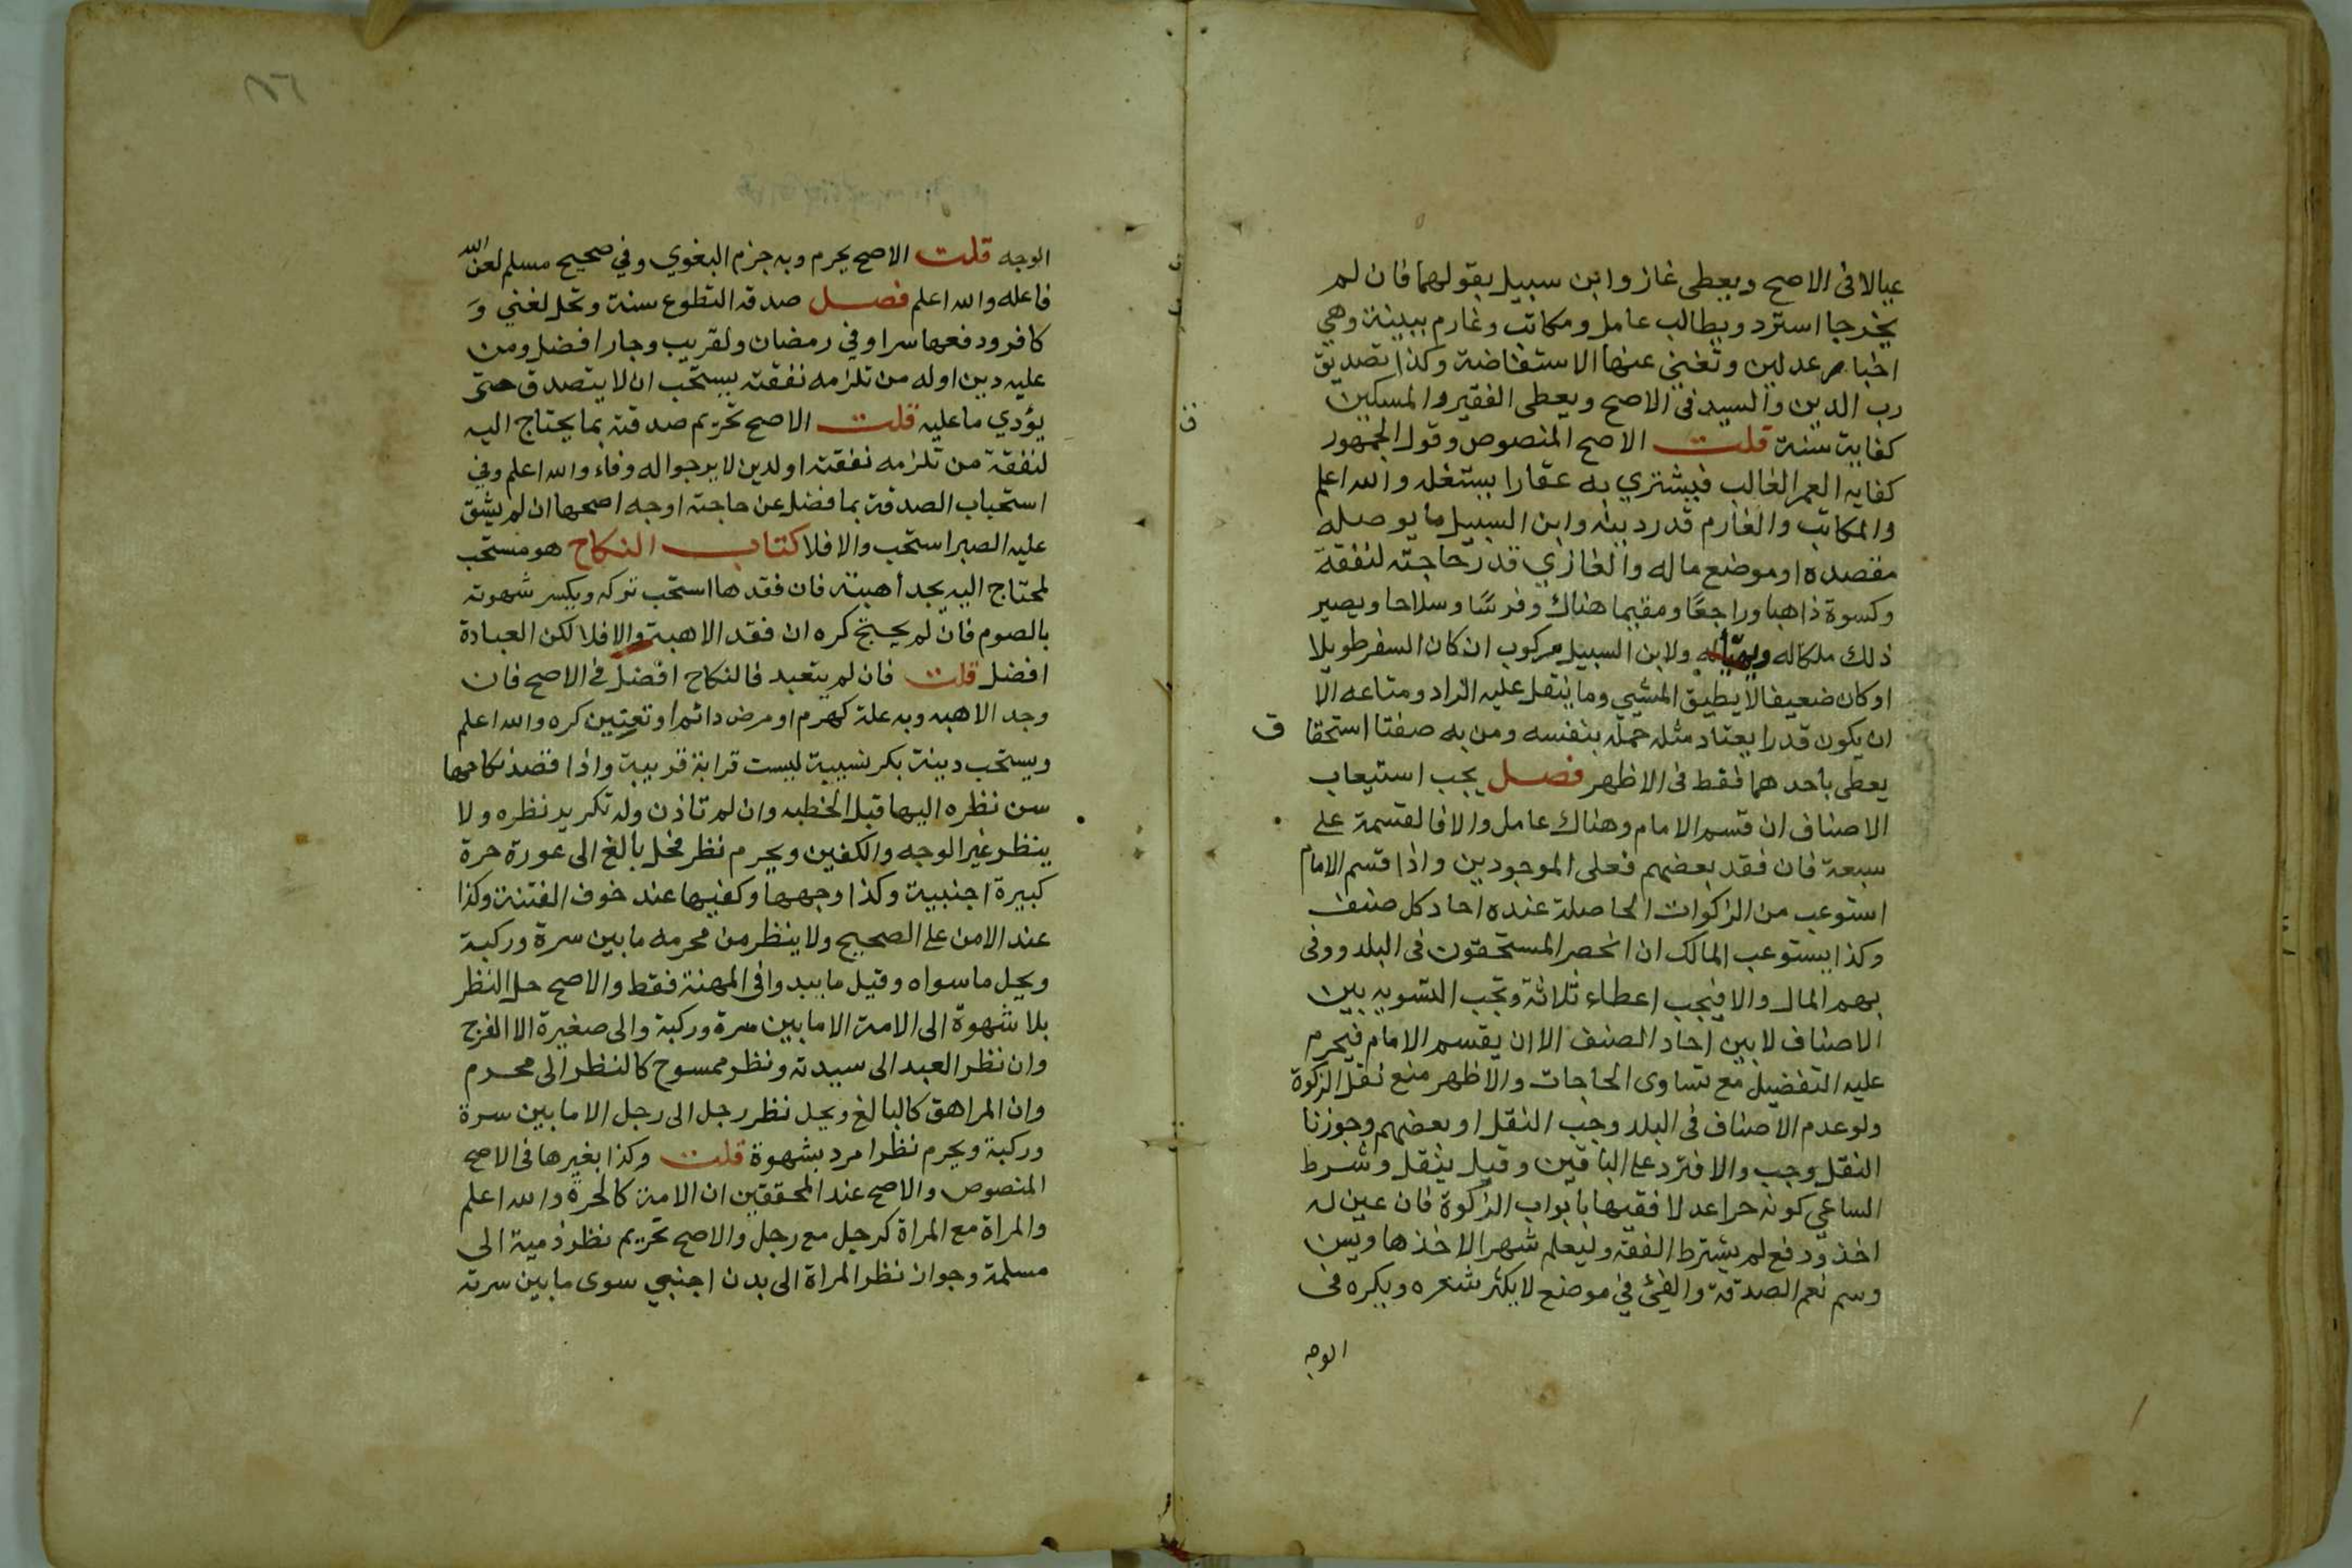 عيالا فى الاصح ويعطى غاز وابن سبيل بقولهما فان لم
يخرجا استرد ويطالب عامل ومكاتب وغارم ببينة وهي
اخبار عدلين وتغني عنها الاستفاضة وكذا تصديق
رب الدين والسيد فى الاصح ويعطى الفقير والمسكين
كفاية سنة قلت الاصح المنصوص وقول الجمهور
كفايه العمر الغالب فيشتري به عقارا يستغله والله اعلم
والمكاتب والغارم قدر دينه وابن السبيل ما يوصله
مقصده او موضع ماله والغازي قدر حاجته لنفقة
وكسوة ذاهبا وراجعًا ومقيما هناك وفرسًا وسلاحا ويصير
ذلك ملكا له ويهيأ له ولابن السبيل مركوب ان كان السفر طويلا
او كان ضعيفا لا يطيق المشي وما ينقل عليه الزاد ومتاعه الا
ان يكون قدرا يعتاد مثله حمله بنفسه ومن به صفتا استحقاق
يعطى باحدهما فقط فى الاظهر فصل يجب استيعاب
الاصناف ان قسم الامام وهناك عامل والا فالقسمة على
سبعة فان فقد بعضهم فعلى الموجودين واذا قسم الامام
استوعب من الزكوات الحاصلة عنده احاد كل صنف
وكذا يستوعب المالك ان انحصر المستحقون فى البلد ووفى
بهم المال والا فيجب اعطاء ثلاثة وتجب التسويه بين
الاصناف لا بين احاد الصنف الا ان يقسم الامام فيحرم
عليه التفضيل مع تساوى الحاجات والاظهر منع نقل الزكوة
ولو عدم الاصناف فى البلد وجب النقل او بعضهم وجوزنا
النقل وجب والا فترد على الباقين وقيل ينقل وشرط
الساعي كونه حرا عدلا فقيها بابواب الزكوة فان عين له
اخذ ودفع لم يشترط الفقه وليعلم شهرا لاخذها ويسن
وسم نعم الصدقة والفئ في موضع لا يكثر شعره ويكره فى
الوجه
الوجه قلت الاصح يحرم وبه جزم البغوي وفي صحيح مسلم لعن الله
فاعله والله اعلم فصل صدقه التطوع سنة وتحل لغني وَ
كافر ودفعها سرا وفي رمضان ولقريب وجار افضل ومن
عليه دين او له من تلزمه نفقته يستحب ان لا يتصدق حتى
يؤدي ما عليه قلت الاصح تحريم صدقته بما يحتاج اليه
لنفقة من تلزمه نفقته او لدين لا يرجو اله وفاء والله اعلم وفي
استحباب الصدقة بما فضل عن حاجته اوجه اصحها ان لم يشق
عليه الصبر استحب والا فلا كتاب النكاح هو مستحب
لمحتاج اليه يجد أهبته فان فقدها استحب تركه ويكسر شهوته
بالصوم فان لم يحتج كره ان فقد الاهبة والا فلا لكن العبادة
افضل قلت فان لم يتعبد فالنكاح افضل فى الاصح فان
وجد الاهبه وبه علة كهرم او مرض دائم او تعنين كره والله اعلم
ويستحب دينة بكر نسيبة ليست قرابة قريبة واذا قصد نكاحها
سن نظره اليها قبل الخطبه وان لم تاذن وله تكرير نظره ولا
ينظر غير الوجه والكفين ويحرم نظر فحل بالغ الى عورة حرة
كبيرة اجنبية وكذا وجهها وكفيها عند خوف الفتنة وكذا
عند الامن على الصحيح ولا ينظر من محرمه ما بين سرة وركبة
ويحل ما سواه وقيل ما يبدوا فى المهنة فقط والاصح حل النظر
بلا شهوة الى الامة الا ما بين سرة وركبة والى صغيرة الا الفرج
وان نظر العبد الى سيدته ونظر ممسوح كالنظر الى محرم
وان المراهق كالبالغ ويحل نظر رجل الى رجل الا ما بين سرة
وركبة ويحرم نظر امرد بشهوة قلت وكذا بغيرها فى الاصح
المنصوص والاصح عند المحققين ان الامة كالحرة والله اعلم
والمراة مع المراة كرجل مع رجل والاصح تحريم نظر ذمية الى
مسلمة وجواز نظر المراة الى بدن اجنبي سوى ما بين سرته